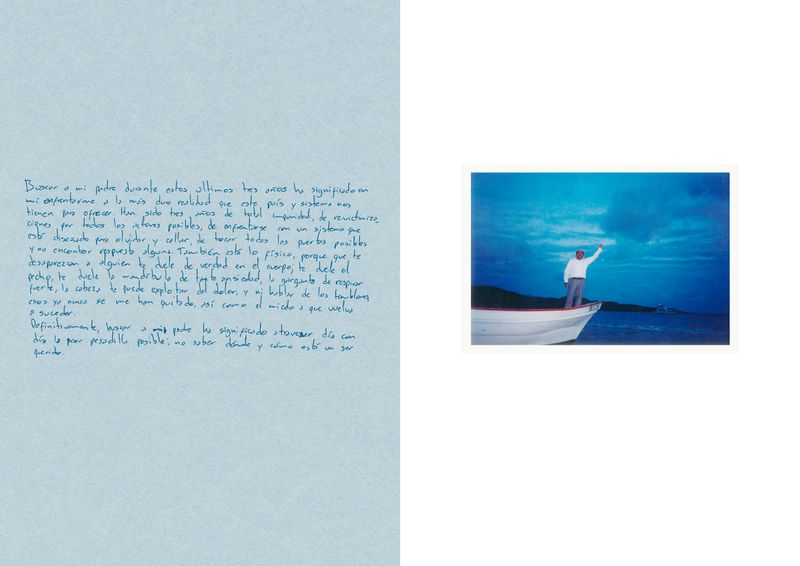 Buscar a mi padre durante estos ultimos tres años ha significado en
mi enfrentarme a la más dura realidad que este país y sistema nos
tienen por ofrecer. Han sido tres años de total impunidad, de revictimiza
ciones por todos los actores posibles, de enfrentarse con un sistema que
está diseñado para olvidar y callar, de tocar todas las puertas posibles
y no encontrar respuesta alguna. También está lo físico, porque que te
desaparezcan a alguien te duele de verdad en el cuerpo, te duele el
pecho, te duele la mandíbula de tanta ansiedad, la garganta de respirar
fuerte, la cabeza te puede explotar del dolor, y ni hablar de los temblores,
esos ya nunca se me han quitado, así como el miedo a que vuelva
a suceder.
Definitivamente, buscar a mi padre ha significado atravesar día con
día la peor pesadilla posible; no saber dónde y cómo está un ser
querido.